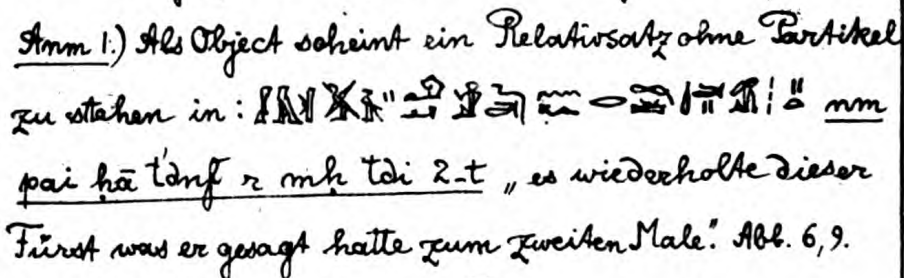 Anm 1.) Als Object scheint ein Relativsatz ohne Partikel
zu stehen in: nm
pai ḥā t'dnf r mḥ tdi 2-t „es wiederholte dieser
Fürst was er gesagt hatte zum zweiten Male." Abb. 6,9.